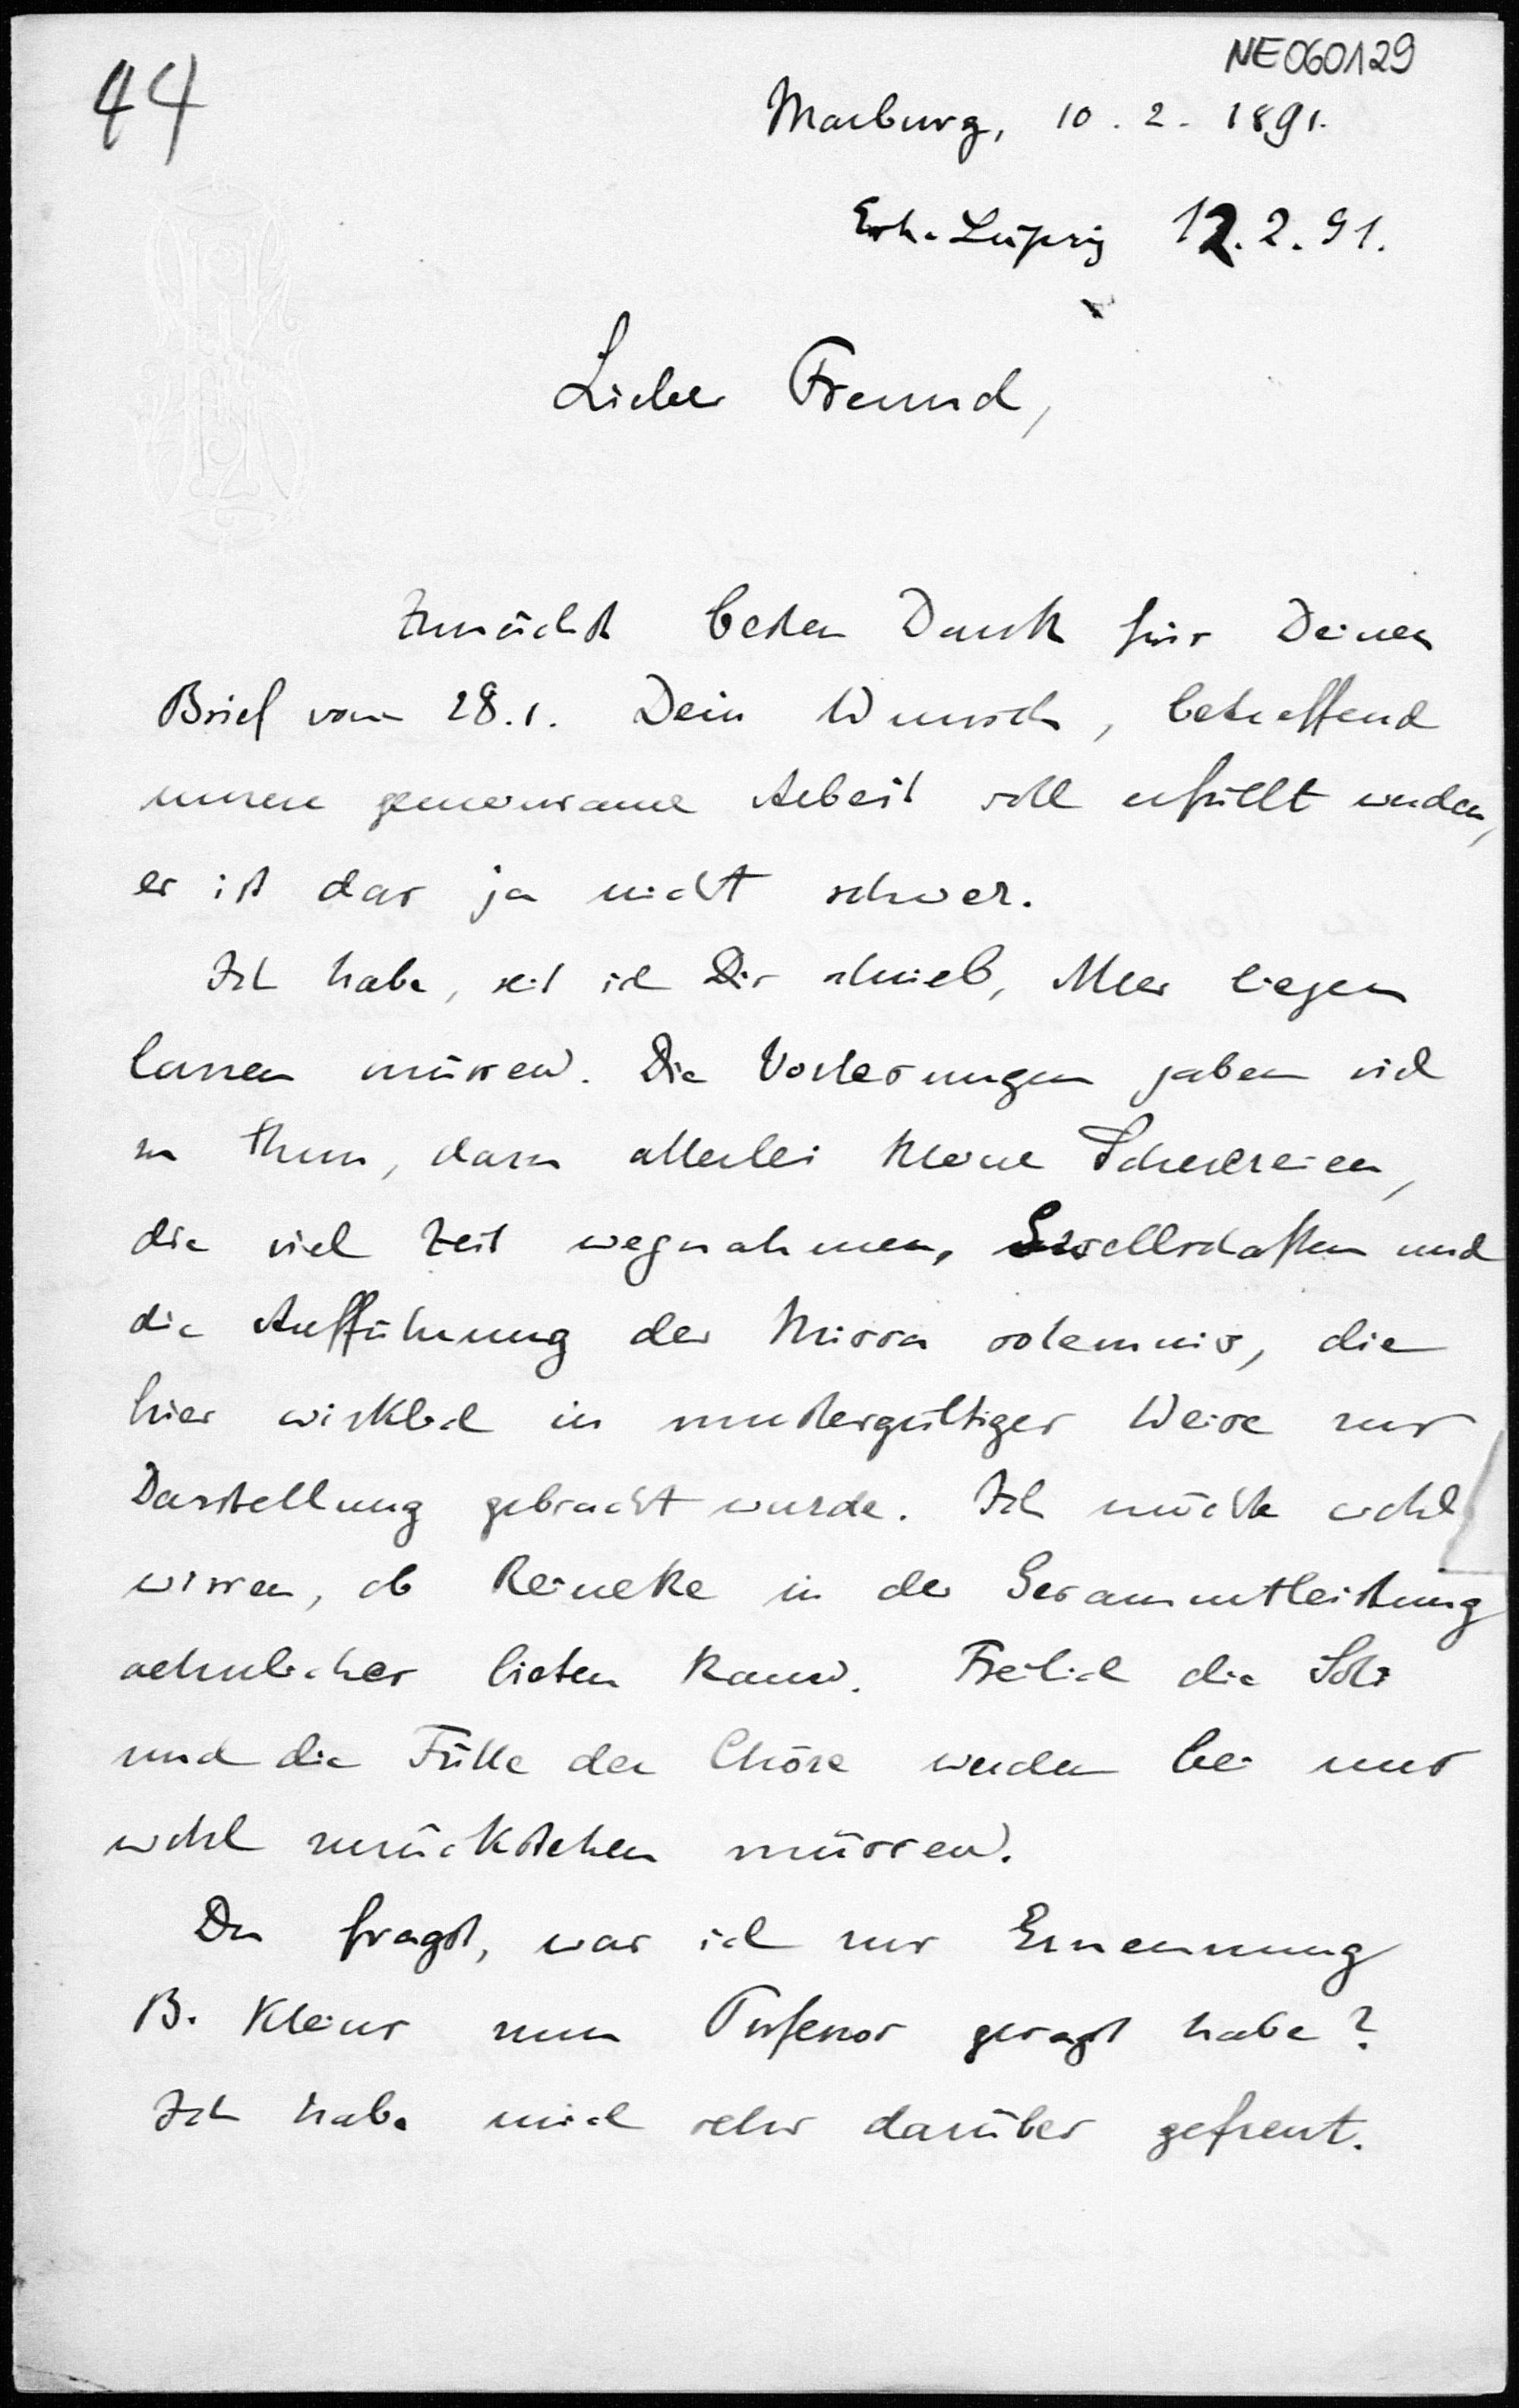 NE060129
44
Marburg, 10. 2. 1891.
Erh. Leipzig 12. 2. 91.
Lieber Freund,
Zunächst besten Dank für Deinen
Brief vom 28.1. Dein Wunsch, betreffend
unsere gemeinsame Arbeit soll erfüllt werden,
es ist das ja nicht schwer.
Ich habe, seit ich Dir schrieb, Alles liegen
lassen müssen. Die Vorlesungen gaben viel
zu thun, dazu allerlei kleine Scherereien,
die viel Zeit wegnahmen, Gesellschaften und
die Aufführung der Missa solemnis, die
hier wirklich in mustergültiger Weise zur
Darstellung gebracht wurde. Ich möchte wohl
wissen, ob Reineke in der Gesammtleistung
aehnliches bieten kann. Freilich die Soli
und die Fülle der Chöre werden bei uns
wohl zurückstehen müssen.
Du fragst, was ich zur Ernennung
B. Kleins zum Professor gesagt habe?
Ich habe mich sehr darüber gefreut.